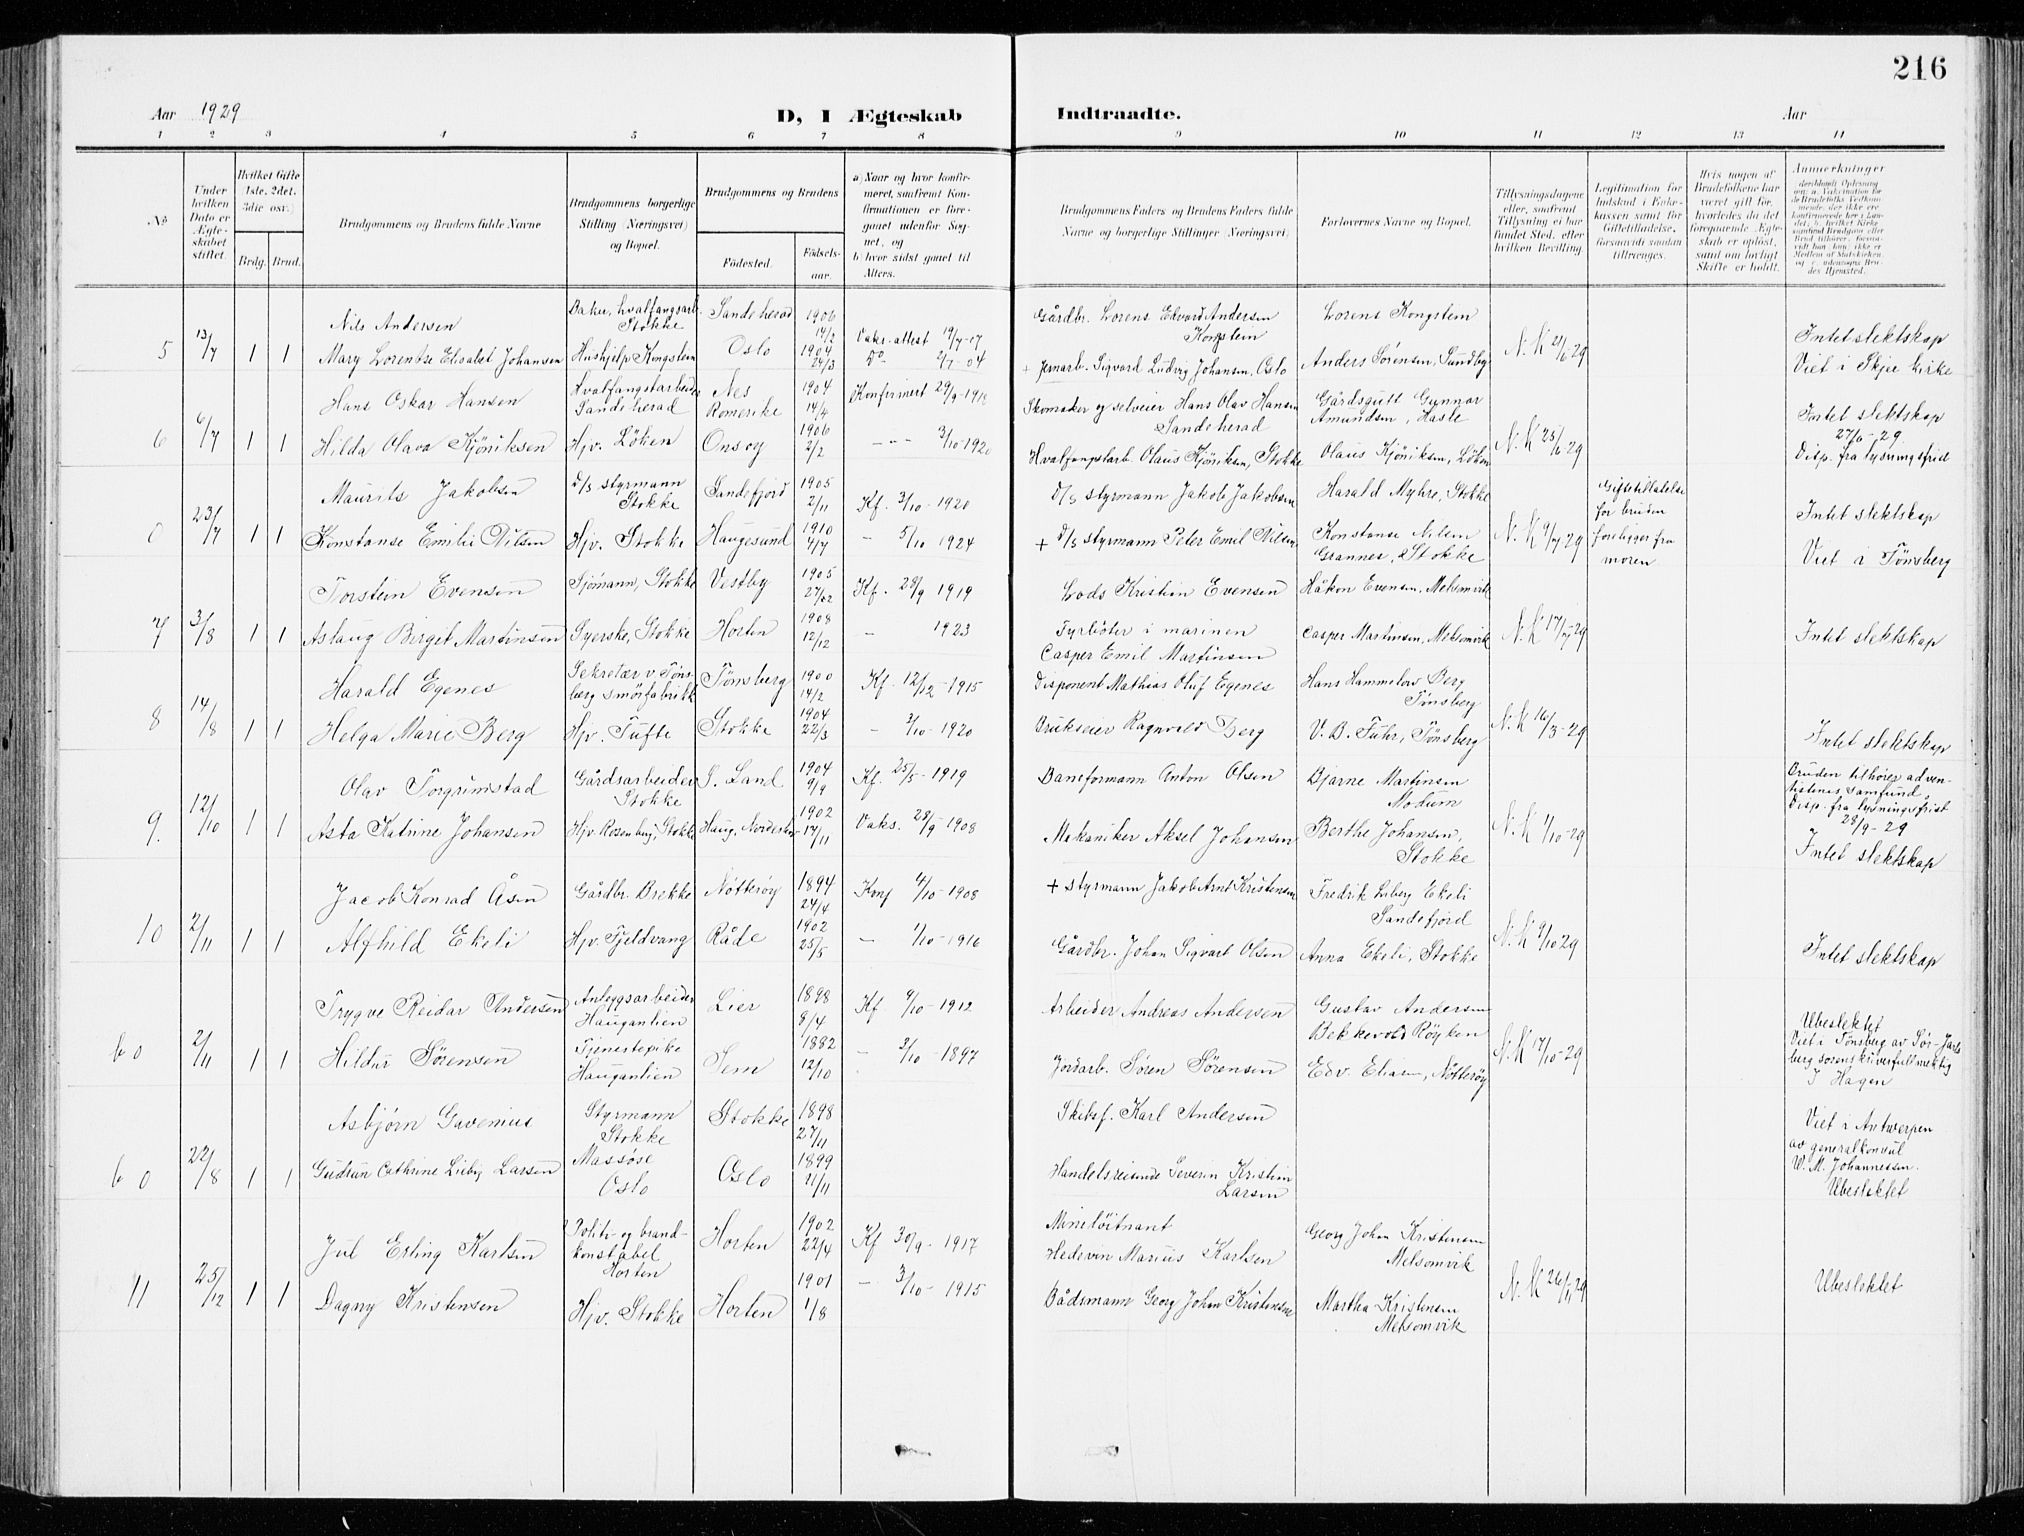 216
Aar 1929 D, I Ægteskab Indtraadte. Aar
1 2 3 4 5 6 7 8 9 10 11 12 13 14
No
Under hvilken Dato er Ægteskabet stiftet.
Hvilket Gifte 1ste, 2det, 3die osv.)
Brdg. Brud.
Brudgommens og Brudens fulde Navne
Brudgommens borgerlige Stilling (Næringsvei) og Bopæl.
Brudgommens og Brudens
Fødested. Fødsels-aar.
a) Naar og hvor konfirmeret, saafremt Konfirmationen er foregaaet udenfor Sognet, og
b) hvor sidst gaaet til Alters.
Brudgommens Faders og Brudens Faders fulde Navne og borgerlige Stillinger (Næringsvei)
Forlovernes Navne og Bopæl.
Tillysningsdagene eller, saafremt Tillysning ei har fundet Sted, efter hvilken Bevilling
Legitimation for Indskud i Enkekassen samt for Giftetilladelse, forsaavidt saadan tiltrænges.
Hvis nogen af Brudefolkene har været gift før, hvorledes da det foregaaende Ægteskab er opløst, samt om lovligt Skifte er holdt.
Anmerkninger
Nils Andersen Baker, hvalfangsarb. Stokke Sandeherad 1906 14/2 Vaks.attest 19/7-17 Gårdbr. Lorens Edvard Andersen Kongstein Lorens Kongstein
5 13/7 1 1 Mary Lorentse Elisabet Johansen Hushjelp Kongstein Oslo 1904 24/3 Do 2/7-04 + Jernarb. Sigvard Ludvig Johansen, Oslo Anders Sörensen, Sundby N.K 21/6 29 Intet slektskap
Viet i Skjee kirke
Hans Oskar Hansen Hvalfangstarbeider Sandeherad Nes Romerike 1904 14/4 Konfirmert 29/9-1918 Skomaker og selveier Hans Olav Hansen Sandeherad Gårdsgutt Gunnar Amundsen, Hasle
6 6/7 1 1 Hilda Olava Kjöniksen Hjv. Löken Onsoy 1906 2/2 - " - 3/10-1920 Hvalfangstarb. Olaus Kjöniksen, Stokke Olaus Kjöniksen, Löken N.K 25/6 29 Intet slektskap
27/6-29
Disp. fra lysningsfrist
Maurits Jakobsen D/s styrmann Stokke Sandefjord 1905 2/11 Kf. 3/10-1920 D/s styrmann Jakob Jakobsen Harald Myhre, Stokke
0 23/7 1 1 Konstanse Emilie Nilsen Hjv. Stokke Haugesund 1910 4/7 - 5/10 1924 + D/s styrmann Peter Emil Nilsen Konstanse Nilsen Grannes, Stokke N.K 9/7 29 Giftetillatelse for bruden foreligger fra moren Intet slektskap
Viet i Tønsberg
Torstein Evensen Sjömann, Stokke Vestby 1905 27/12 Kf. 28/9 1919 Lods Kristian Evensen Håkon Evensen, Melsomvik
7 3/8 1 1 Aslaug Birgit Martinsen Syerske, Stokke Horten 1908 12/12 - 1923 Fyrböter i marinen Casper Emil Martinsen Casper Martinsen, Melsomvik N.K 17/7 29 Intet slektskap
Harald Egenes Sekretær v. Tønsberg smörfabrikk Tönsberg 1900 14/2 Kf. 12/12-1915 Disponent Mathias Oluf Egenes Hans Hammelow Berg Tönsberg
8 14/8 1 1 Helga Marie Berg Hjv. Tufte Stokke 1904 22/3 - 3/10-1920 Brukseier Ragnvald Berg V. B. Fuhr, Tönsberg N.K 16/3-29 Intet slektskap
Olav Torgrimstad Gårdsarbeider Stokke S. Land 1904 9/9 Kf. 25/5-1919 Baneformann Anton Olsen Bjarne Martinsen Modum
9. 12/10 1 1 Asta Katrine Johansen Hjv. Rosenberg, Stokke 1902 17/11 Vaks. 28/9-1908 Mekaniker Aksel Johansen Berthe Johansen, Stokke N.K 1/10-29 Bruden tilhører adventistenes samfund.
Disp. fra lysningsfrist
28/9-29
Intet slektskap
Jacob Konrad Åsen Gårdbr. Brekke Nötteröy 1894 24/4 Konf 4/10-1908 + Styrmann Jakob Arnt Kristensen Fredrik Liberg Ekeli Sandefjord
10 2/11 1 1 Alfhild Ekeli Hjv. Fjeldvang Råde 1902 25/5 - 1/10-1916 Gårdbr. Johan Sigvart Olsen Anna Ekeli, Stokke N.K 9/10 29 Intet slektskap
Trygve Reidar Andersen Anleggsarbeider Hauganlien Lier 1898 8/4 Kf. 9/10-1912 Arbeider Andreas Andersen Gustav Andersen Bekkevold Röyken
b 0 2/11 1 1 Hildur Sørensen Tjenestepike Hauganlien Sem 1882 12/10 - 3/10-1897 Jordarb. Sören Sörensen Edv. Eliasen, Nötteröy N.K 17/10-29 Ubeslektet
Viet i Tønsberg av Sör-Jarlsberg sorenskriverfullmektig
J Hagen
Asbjørn Gavenius Styrmann Stokke Stokke 1898 27/11 Skibsf. Karl Andersen
b 0 22/8 1 1 Gudrun Cathrine Liebig Larsen Massöse Oslo Oslo 1899 21/11 Handelsreisende Severin Kristian Larsen Viet i Antwerpen
av generalkonsul
W. M. Johannessen.
Ubeslektet
Jul Erling Karlsen Politi- og brandkonstabel Horten Horten 1902 22/4 Kf 30/9-1917 Mineløitnant Hedevin Marius Karlsen Georg Johan Kristensen Melsomvik
11 25/12 1 1 Dagny Kristensen Hjv. Stokke Horten 1901 1/8 - 3/10-1915 Bådsmann Georg Johan Kristensen Martha Kristensen Melsomvik N.K 26/11 29 Ubeslektet